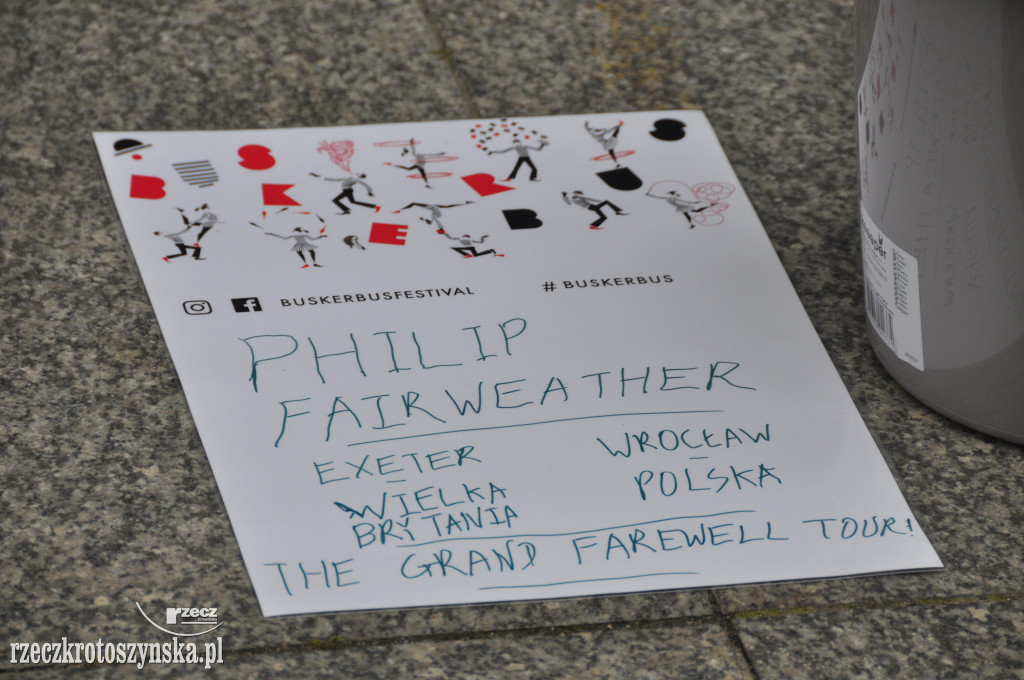 BUSKERBUS
BUSKERBUSFESTIVAL
#BUSKERBUS
PHILIP
FAIRWEATHER
EXETER
WIELKA
BRYTANIA
WROCŁAW
POLSKA
THE GRAND FAREWELL TOUR!
rzecz
rzeczkrotoszynska.pl